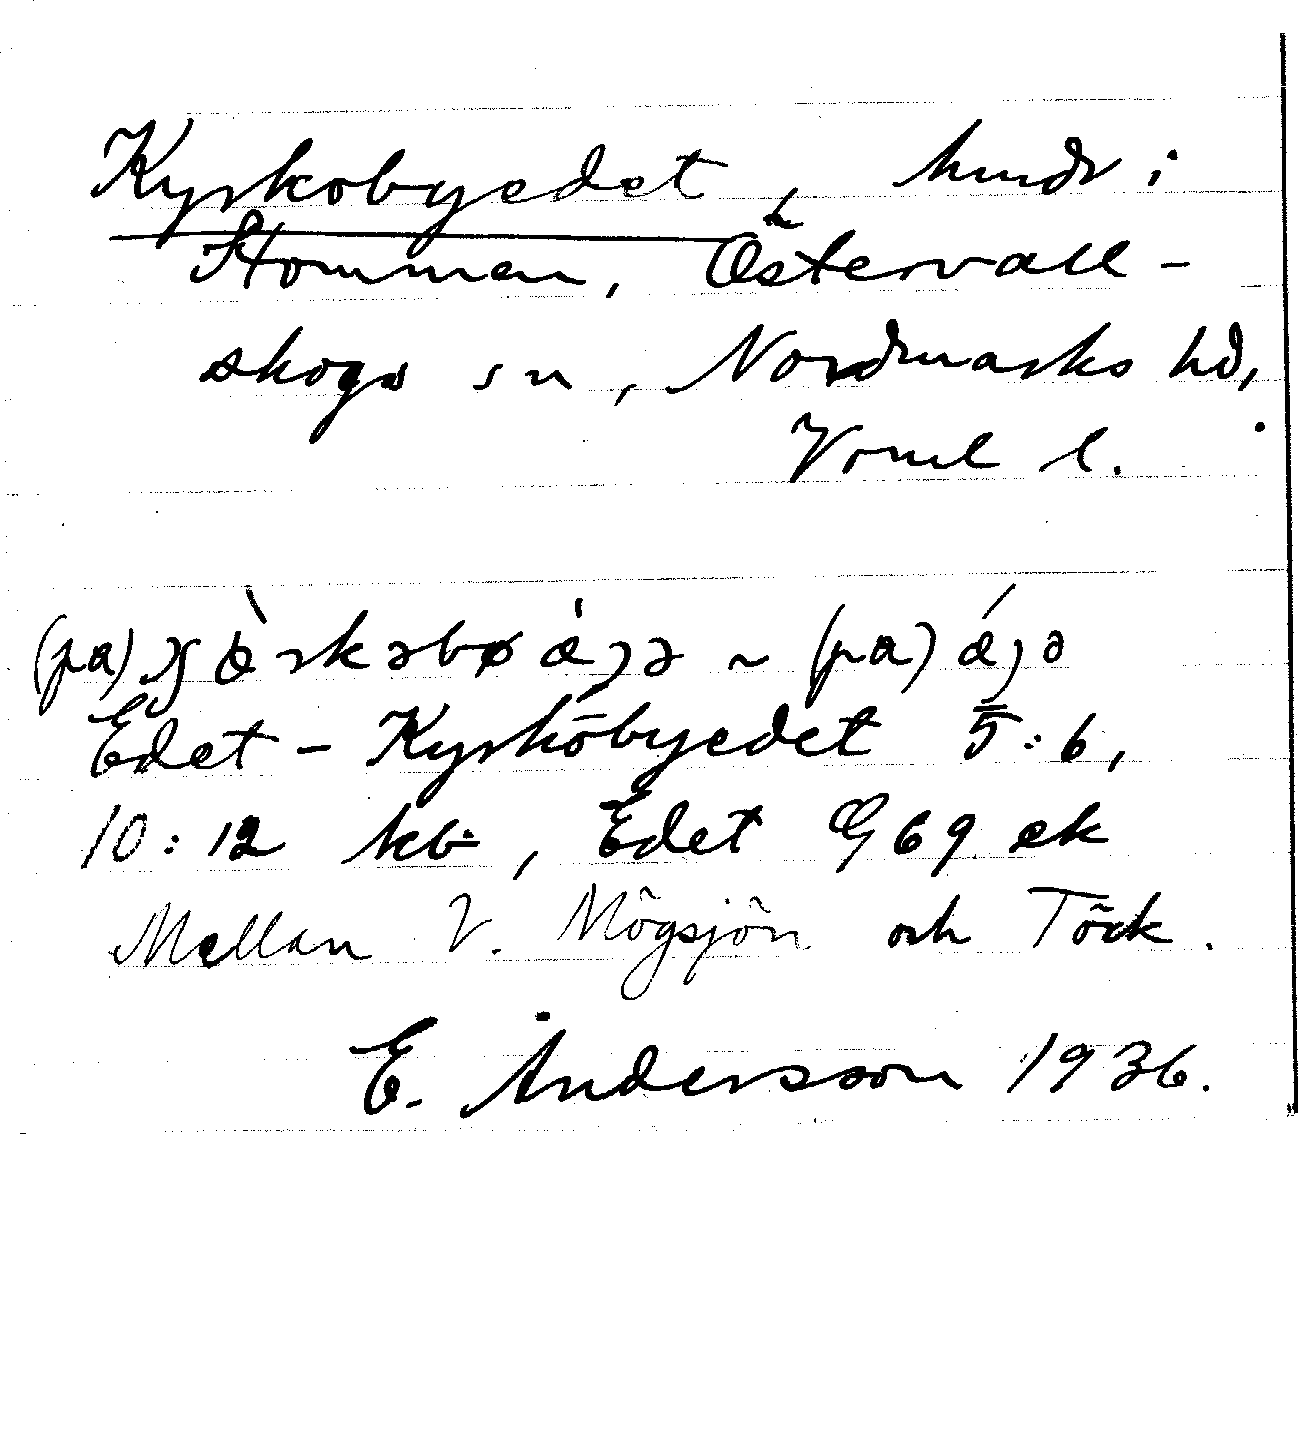 Kyrkobyedet, hmdr i
Stommen, Östervall-
skogs sn, Nordmarks hd,
Vrml l.
(pa) ~ (pa)
Edet - Kyrkobyedet 5:6,
10:12 kb, Edet G 69 ek
Mellan V. Mögsjön och Töck.
E. Andersson 1936.